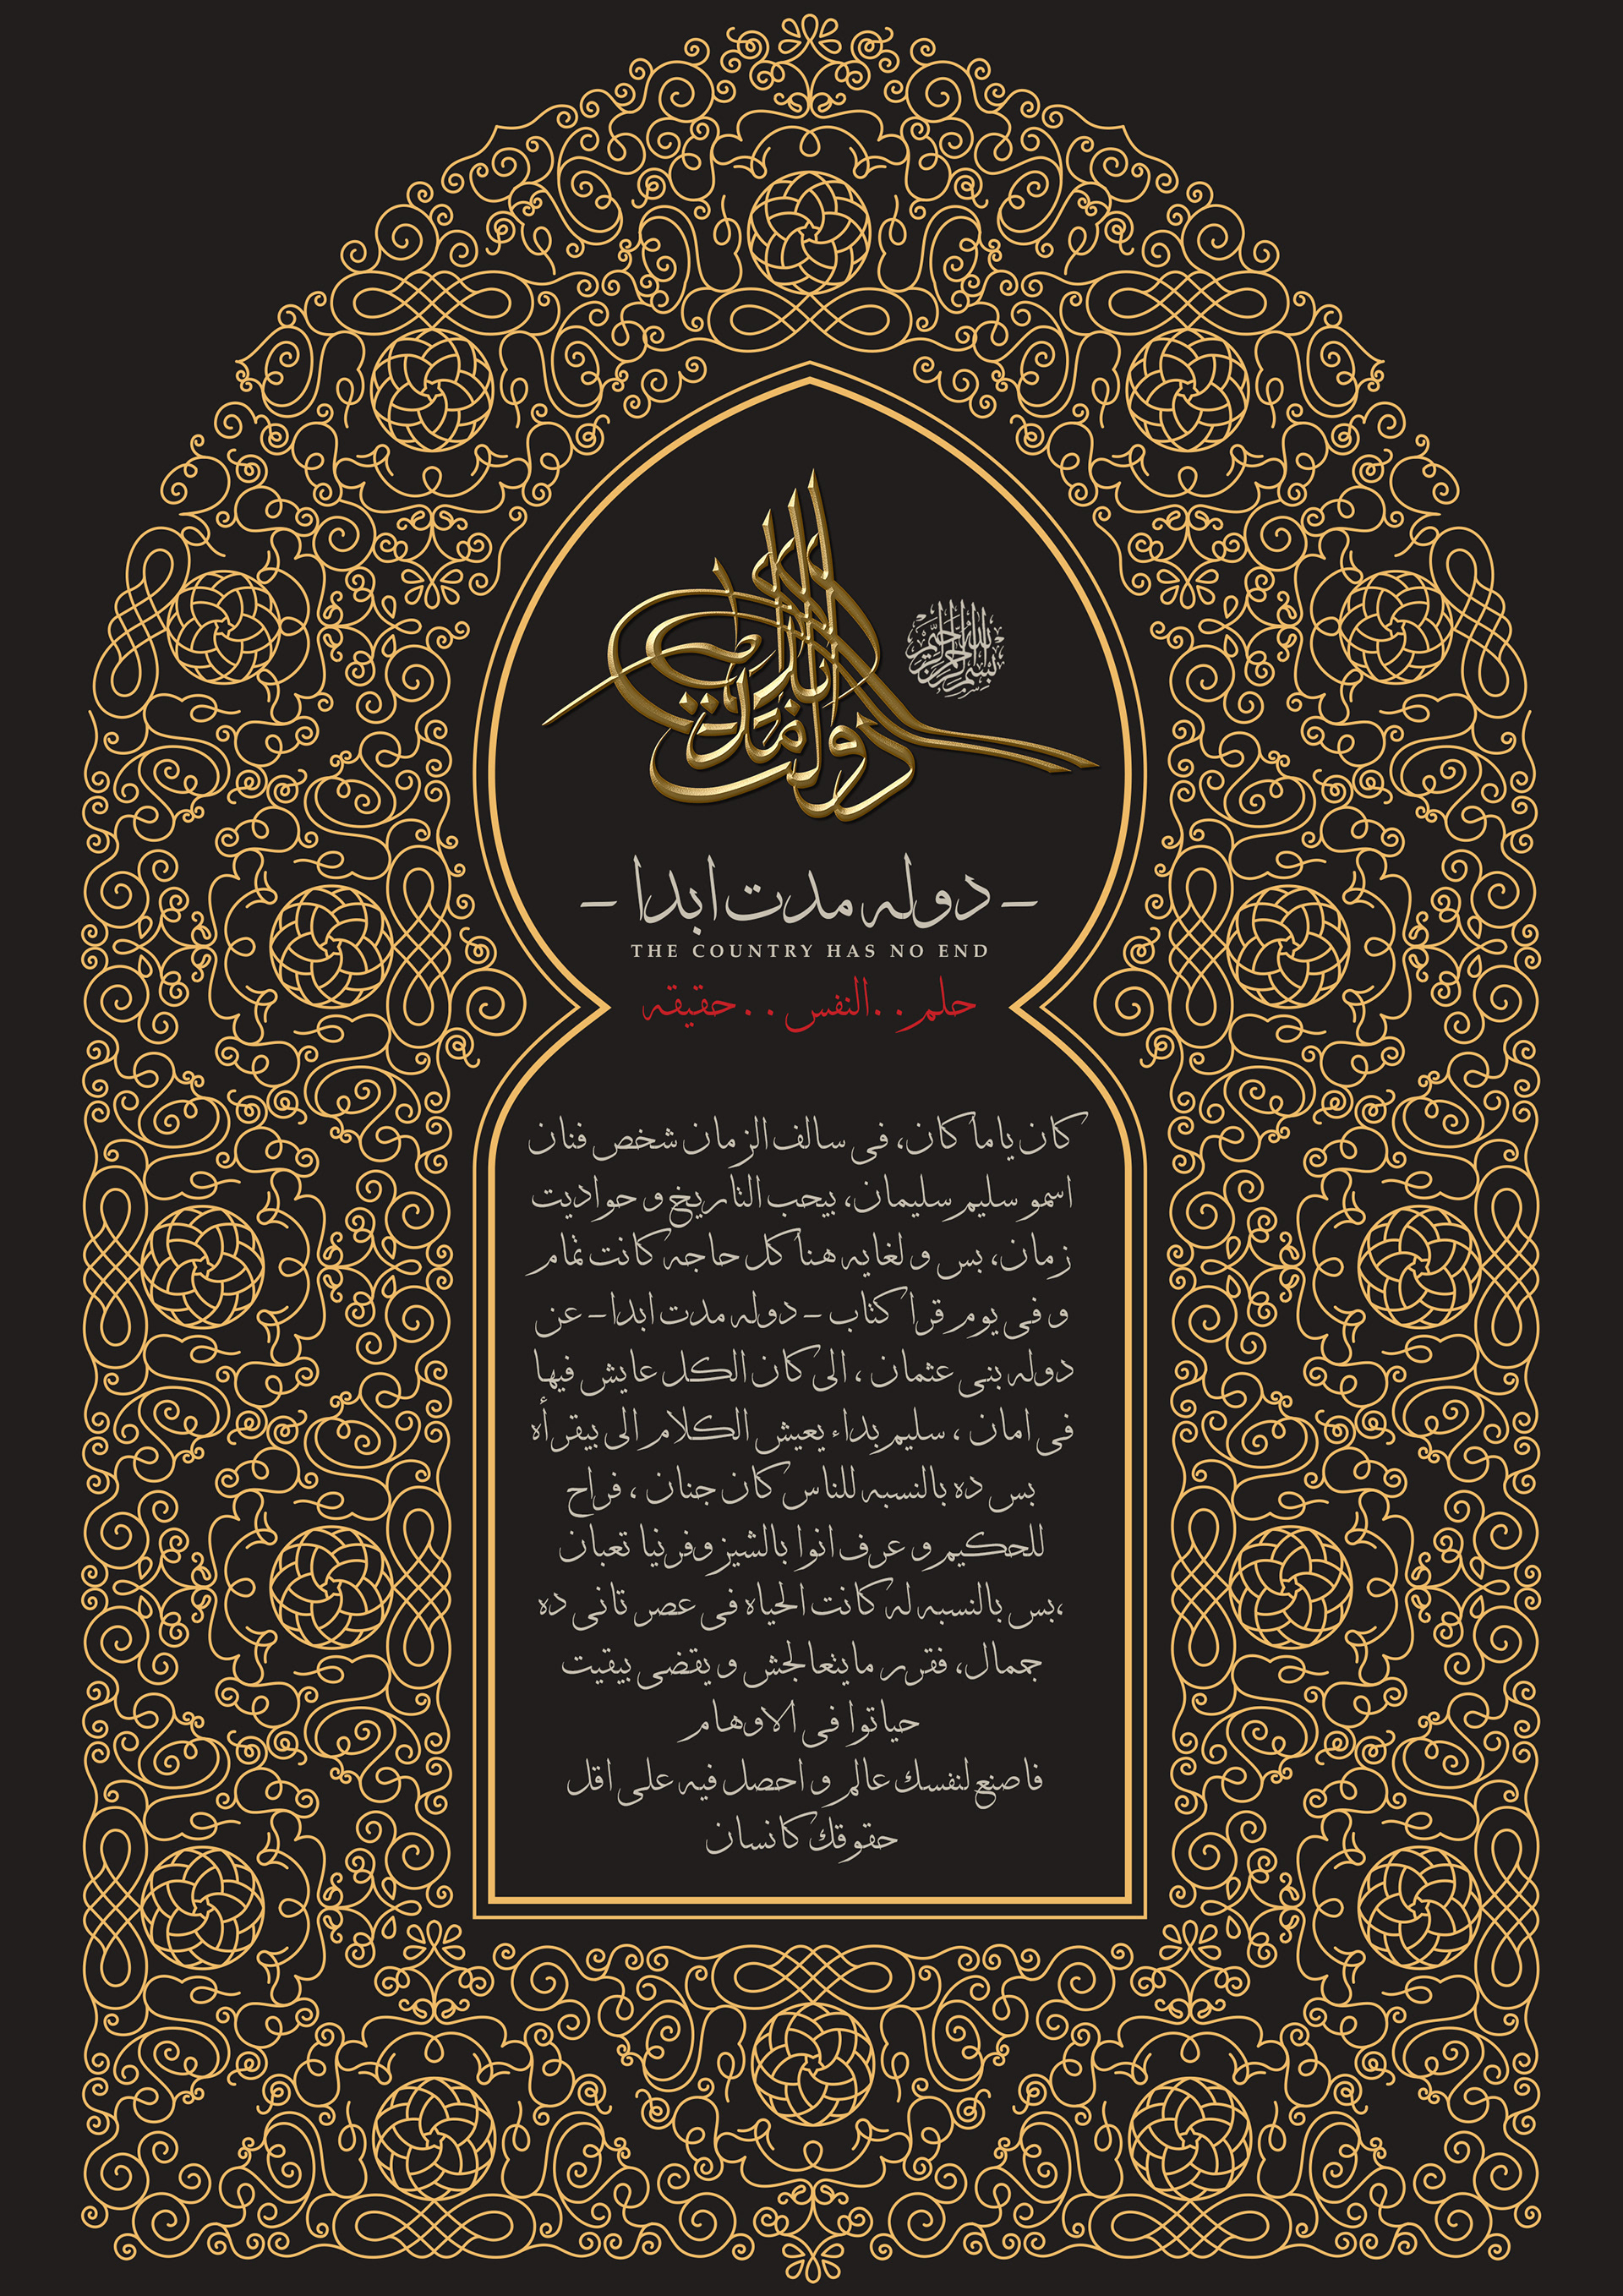 دولت مدت ابدا
بسم الله الرحمن الرحيم
- دوله مدت ابدا -
THE COUNTRY HAS NO END
حلم . . النفس . . حقيقه
كان ياما كان، فى سالف الزمان شخص فنان
اسمو سليم سليمان، بيحب التاريخ و حواديت
زمان، بس و لغايه هنا كل حاجه كانت تمام
و فى يوم قرا كتاب - دوله مدت ابدا - عن
دوله بنى عثمان ، الى كان الكل عايش فيها
فى امان ، سليم بداء يعيش الكلام الى بيقرأه
بس ده بالنسبه للناس كان جنان ، فراح
للحكيم و عرف انوا بالشيزوفرنيا تعبان
،بس بالنسبه له كانت الحياه فى عصر تانى ده
جمال، فقرر مايتعالجش و يقضى بيقيت
حياتوا فى الاوهام
فاصنع لنفسك عالم و احصل فيه على اقل
حقوقك كانسان